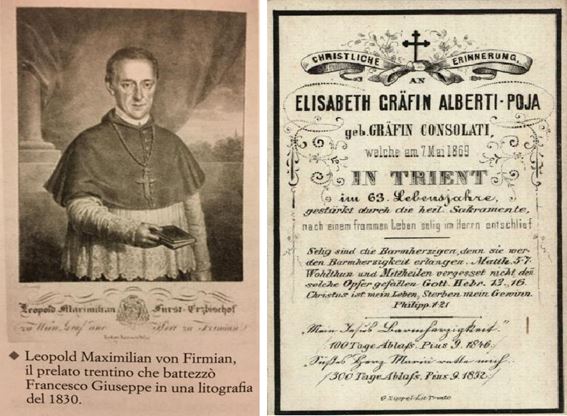 Leopold Maximilian Fürst-Erzbischof
zu Wien, Graf und Herr zu Firmian
Leopold Maximilian von Firmian,
il prelato trentino che battezzò
Francesco Giuseppe in una litografia
del 1830.
CHRISTLICHE ERINNERUNG
AN
ELISABETH GRÄFIN ALBERTI-POJA
geb. GRÄFIN CONSOLATI,
welche am 7 Mai 1869
IN TRIENT
im 63. Lebensjahre,
gestärkt durch die heil. Sakramente,
nach einem frommen Leben selig im Herrn entschlief.
Selig sind die Barmherzigen, denn sie wer-
den Barmherzigkeit erlangen. Matth. 5-7.
Wohlthun und Mittheilen vergesset nicht, den
solche Opfer gefallen Gott. Hebr. 13.,16.
Christus ist mein Leben, Sterben mein Gewinn.
Philipp. 1-21
Mein Jesus Barmherzigkeit"
100 Tage Ablass. Pius 9. 1846.
Süßes Herz Mariä rette mich
300 Tage Ablass. Pius 9. 1852.
G. Zippel-Lit Trento